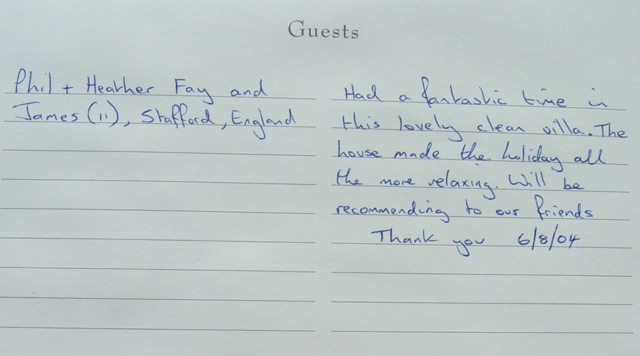 Guests
Phil + Heather Fay and
James (11), Stafford, England
Had a fantastic time in
this lovely clean villa. The
house made the holiday all
the more relaxing. Will be
recommending to our friends
Thank you 6/8/04